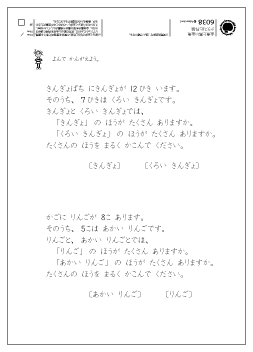 6038
よんで かんがえよう。
きんぎょばち にきんぎょが 12ひき います。
そのうち、 7ひきは くろい きんぎょです。
きんぎょと くろい きんぎょでは、
「きんぎょ」 の ほうが たくさん ありますか。
「くろい きんぎょ」 の ほうが たくさん ありますか。
たくさんの ほうを まるく かこんで ください。
〔きんぎょ〕 〔くろい きんぎょ〕
かごに りんごが 8こ あります。
そのうち、 5こは あかい りんごです。
りんごと、 あかい りんごとでは、
「りんご」 の ほうが たくさん ありますか。
「あかい りんご」 の ほうが たくさん ありますか。
たくさんの ほうを まるく かこんで ください。
〔あかい りんご〕 〔りんご〕